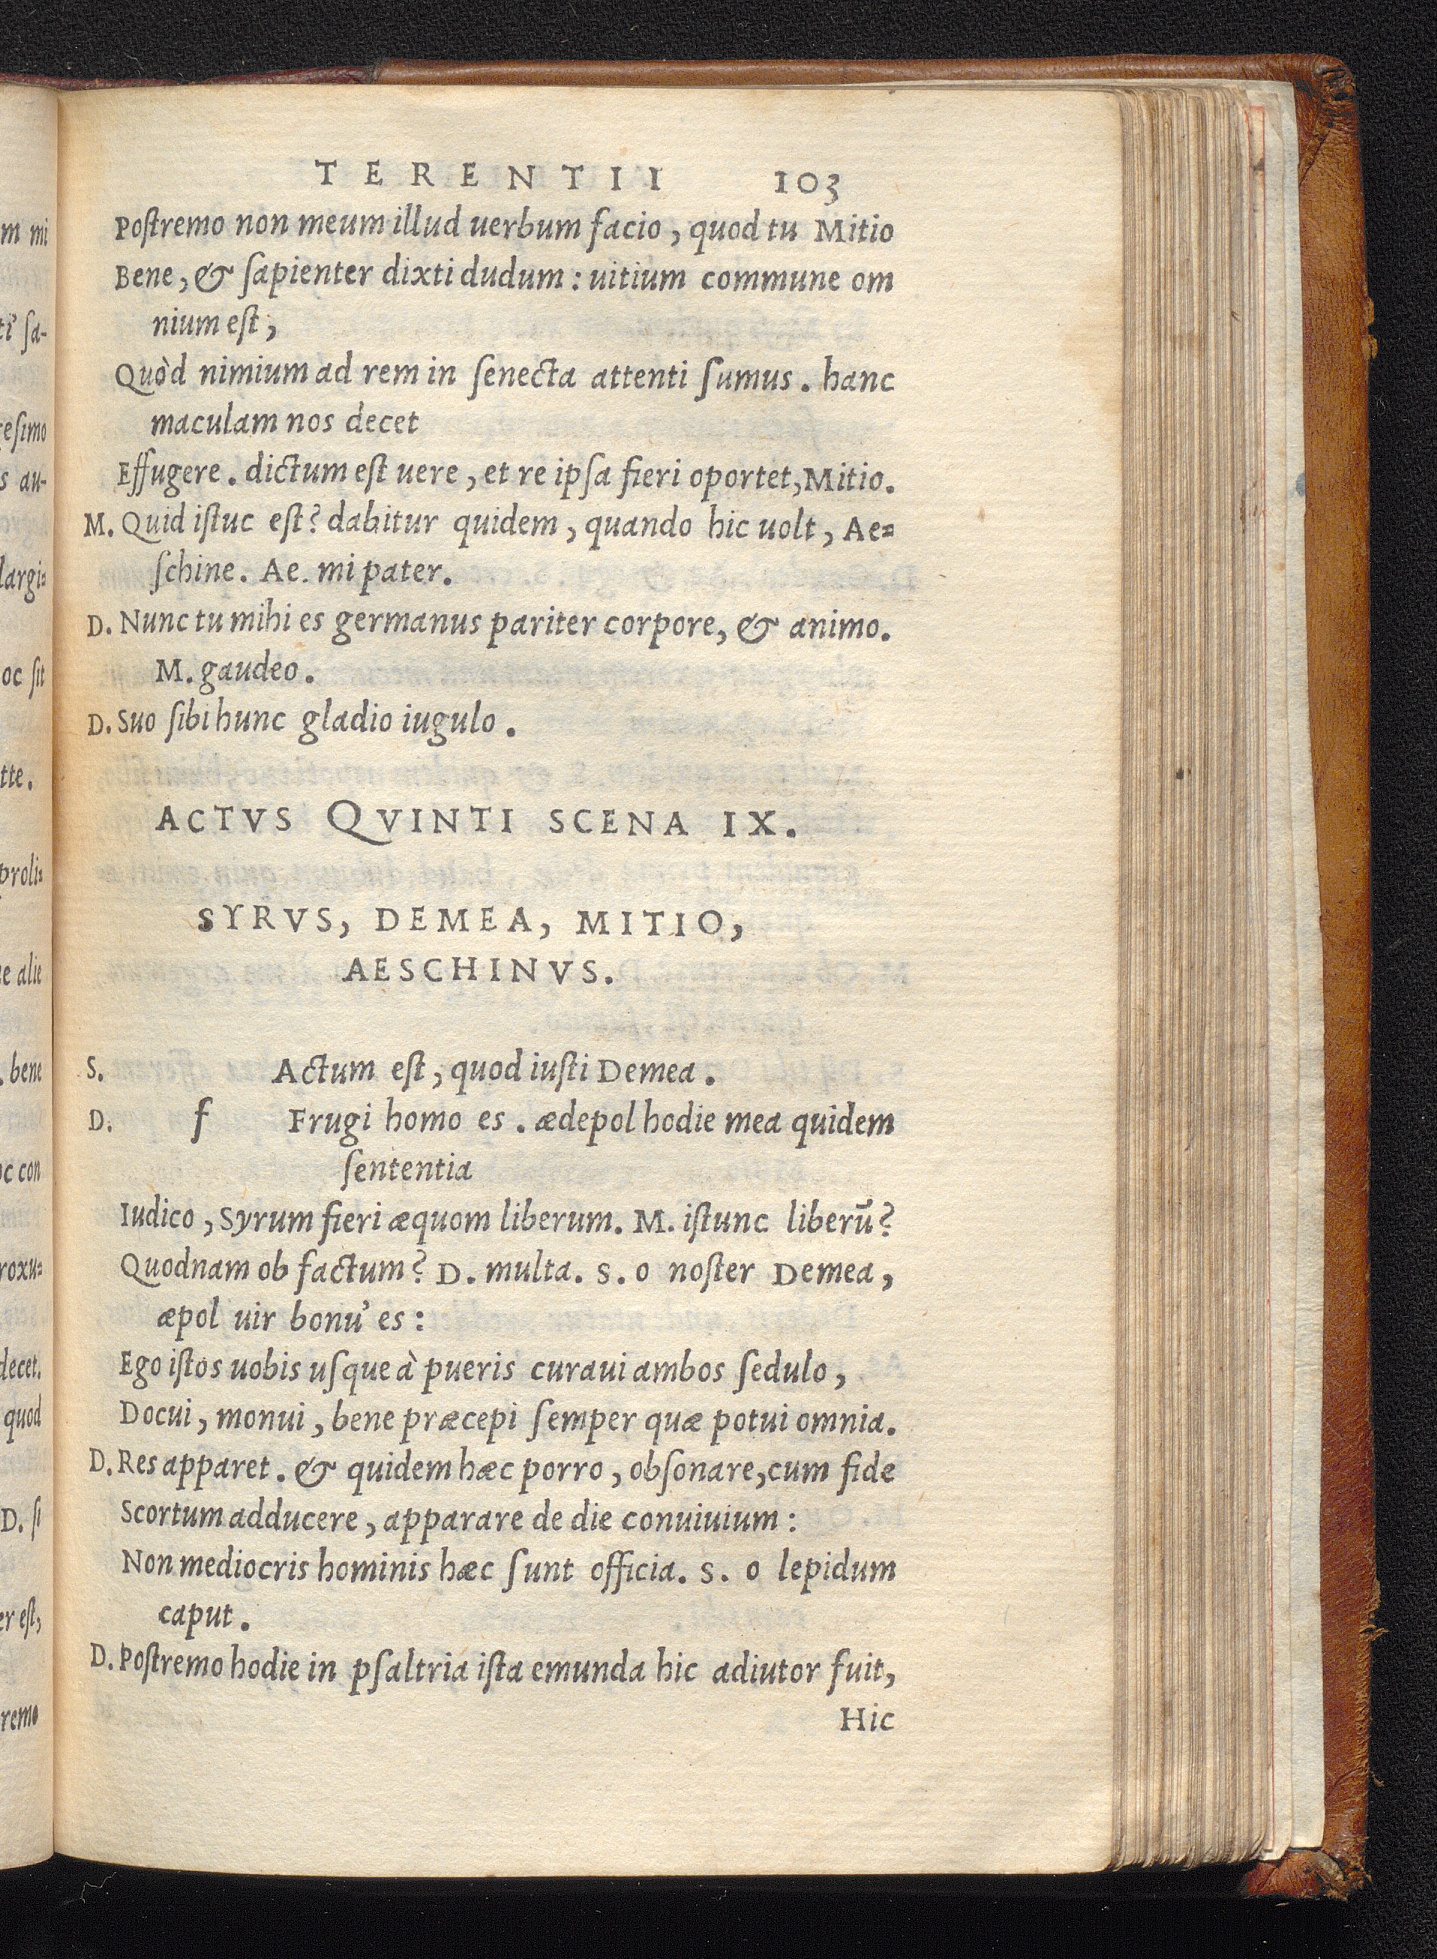 TERENTII 103
Postremo non meum illud uerbum facio, quod tu Mitio
Bene, & sapienter dixti dudum: uitium commune om
nium est,
Quòd nimium ad rem in senecta attenti sumus. hanc
maculam nos decet
Effugere. dictum est uere, et re ipsa fieri oportet, Mitio.
M. Quid istuc est? dabitur quidem, quando hic uolt, Ae=
schine. Ae. mi pater.
D. Nunc tu mihi es germanus pariter corpore, & animo.
M. gaudeo.
D. Suo sibi hunc gladio iugulo.
ACTVS QVINTI SCENA IX.
SYRVS, DEMEA, MITIO,
AESCHINVS.
S. Actum est, quod iusti Demea.
D. f Frugi homo es. ædepol hodie mea quidem
sententia
Iudico, Syrum fieri æquom liberum. M. istunc liberū?
Quodnam ob factum? D. multa. S. o noster Demea,
æpol uir bonu' es:
Ego istos uobis usque à pueris curaui ambos sedulo,
Docui, monui, bene præcepi semper quæ potui omnia.
D. Res apparet. & quidem hæc porro, obsonare, cum fide
Scortum adducere, apparare de die conuiuium:
Non mediocris hominis hæc sunt officia. S. o lepidum
caput.
D. Postremo hodie in psaltria ista emunda hic adiutor fuit,
Hic